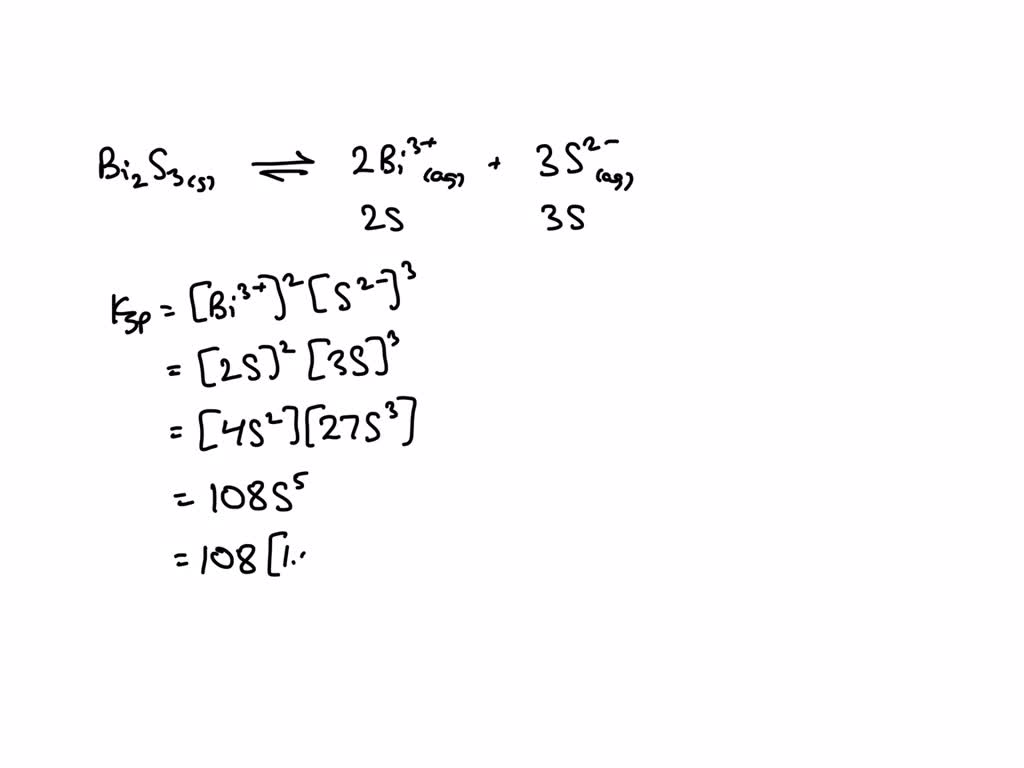 Bi₂S₃(s) ⇌ 2Bi³⁺(aq) + 3S²⁻(aq)
2S 3S
Ksp = [Bi³⁺]² [S²⁻]³
= [2S]² [3S]³
= [4S²][27S³]
= 108S⁵
= 108 [1.